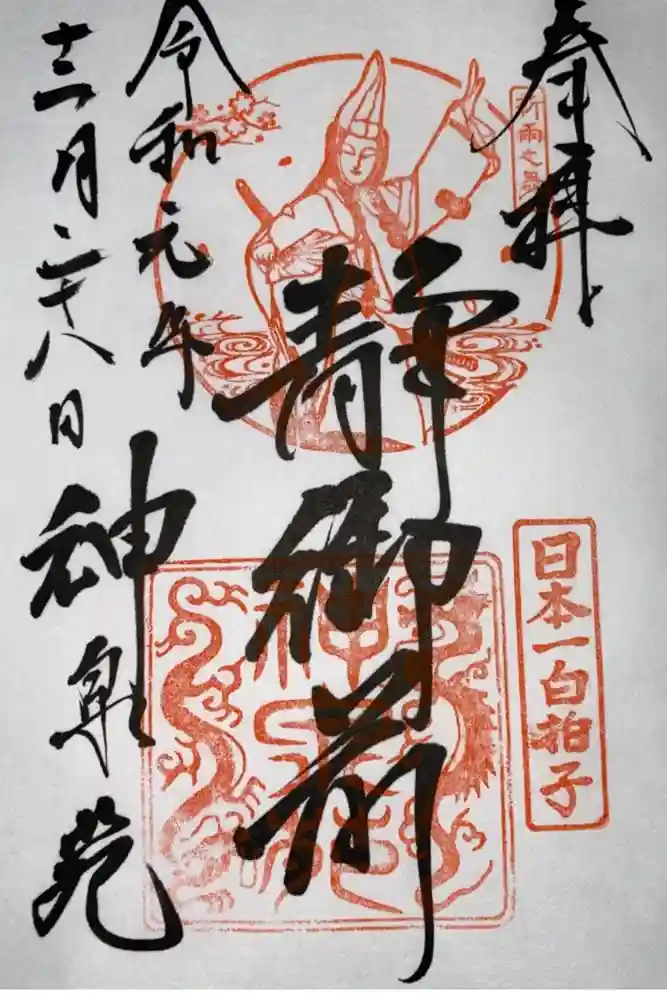 奉拝
祈雨之
日本一白拍子
静御前
令和元年
十二月二十八日
神泉苑